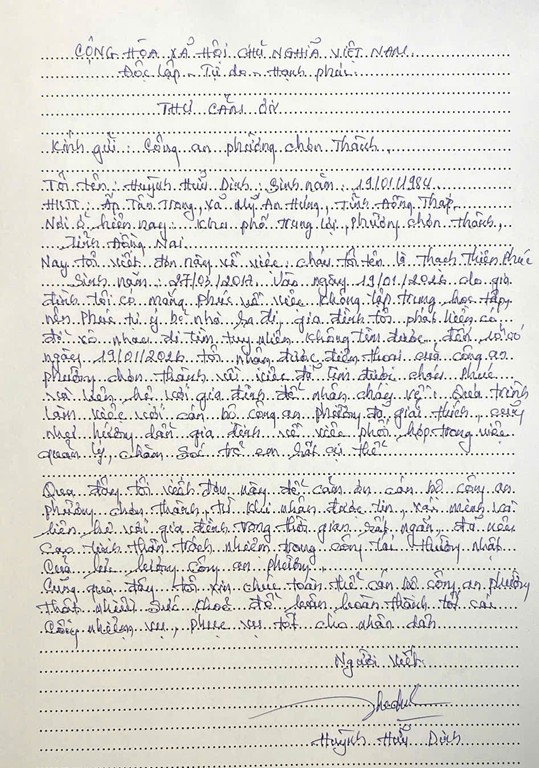 CỘNG HÒA XÃ HỘI CHỦ NGHĨA VIỆT NAM
Độc lập - Tự do - Hạnh phúc.
THƯ CẢM ƠN
Kính gửi: Công an phường chơn Thành,
Tôi tên: Huỳnh Hữu Dinh: Sinh năm: 19/01/1984
HKTT: Ấp Tân Trong, xã Mỹ An Hưng, Tỉnh Đồng Tháp
Nơi ở hiện nay: Khu phố Trung Lợi, Phường chơn thành,
Tỉnh Đồng Nai
Nay tôi viết đơn này về việc: cháu tôi tên là Thạch Thiên Phúc
Sinh năm: 27/03/2017. Vào ngày 19/01/2026 do gia
đình tôi có mắng Phúc về việc không tập trung học tập
nên Phúc tự ý bỏ nhà ra đi, gia đình tôi phát hiện có
đi xô nhau đi tìm tuy nhiên không tìm được, đến
ngày 19/01/2026 tôi nhận được điện thoại của công an
phường chơn thành về việc đã tìm được cháu Phúc
và liên hệ với gia đình để nhận cháu về. Quá trình
làm việc với cán bộ công an phường đã giải thích, cũng
như hướng dẫn gia đình về việc phối hợp trong việc
quản lý, chăm sóc trẻ em hết sự thể
Qua đây tôi viết đơn này để cảm ơn cán bộ công an
phường chơn thành, từ khi nhận được tin, xác minh và
liên hệ với gia đình trong thời gian rất ngắn, đã nêu
cao tinh thần trách nhiệm trong công tác thường nhật
của lực lượng công an phường.
Cũng qua đây tôi xin chúc toàn thể cán bộ công an phường
thật nhiều sức khoẻ để luôn hoàn thành tốt các
công nhiệm vụ, phục vụ tốt cho nhân dân
Người viết
Huỳnh Hữu Dinh